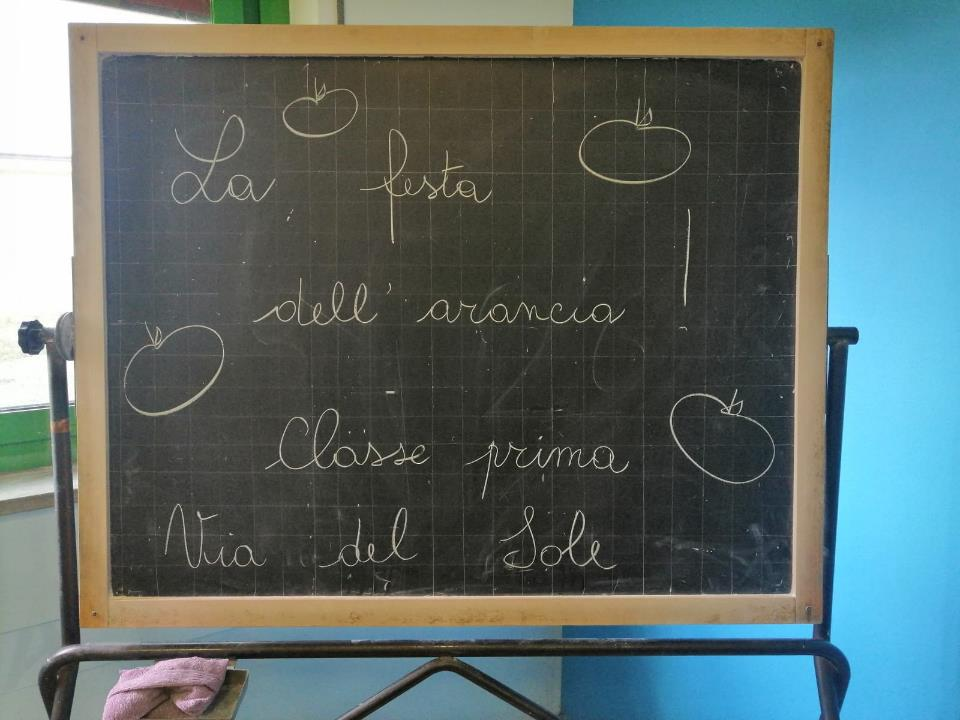 La festa
dell' arancia !
Classe prima
Via del Sole